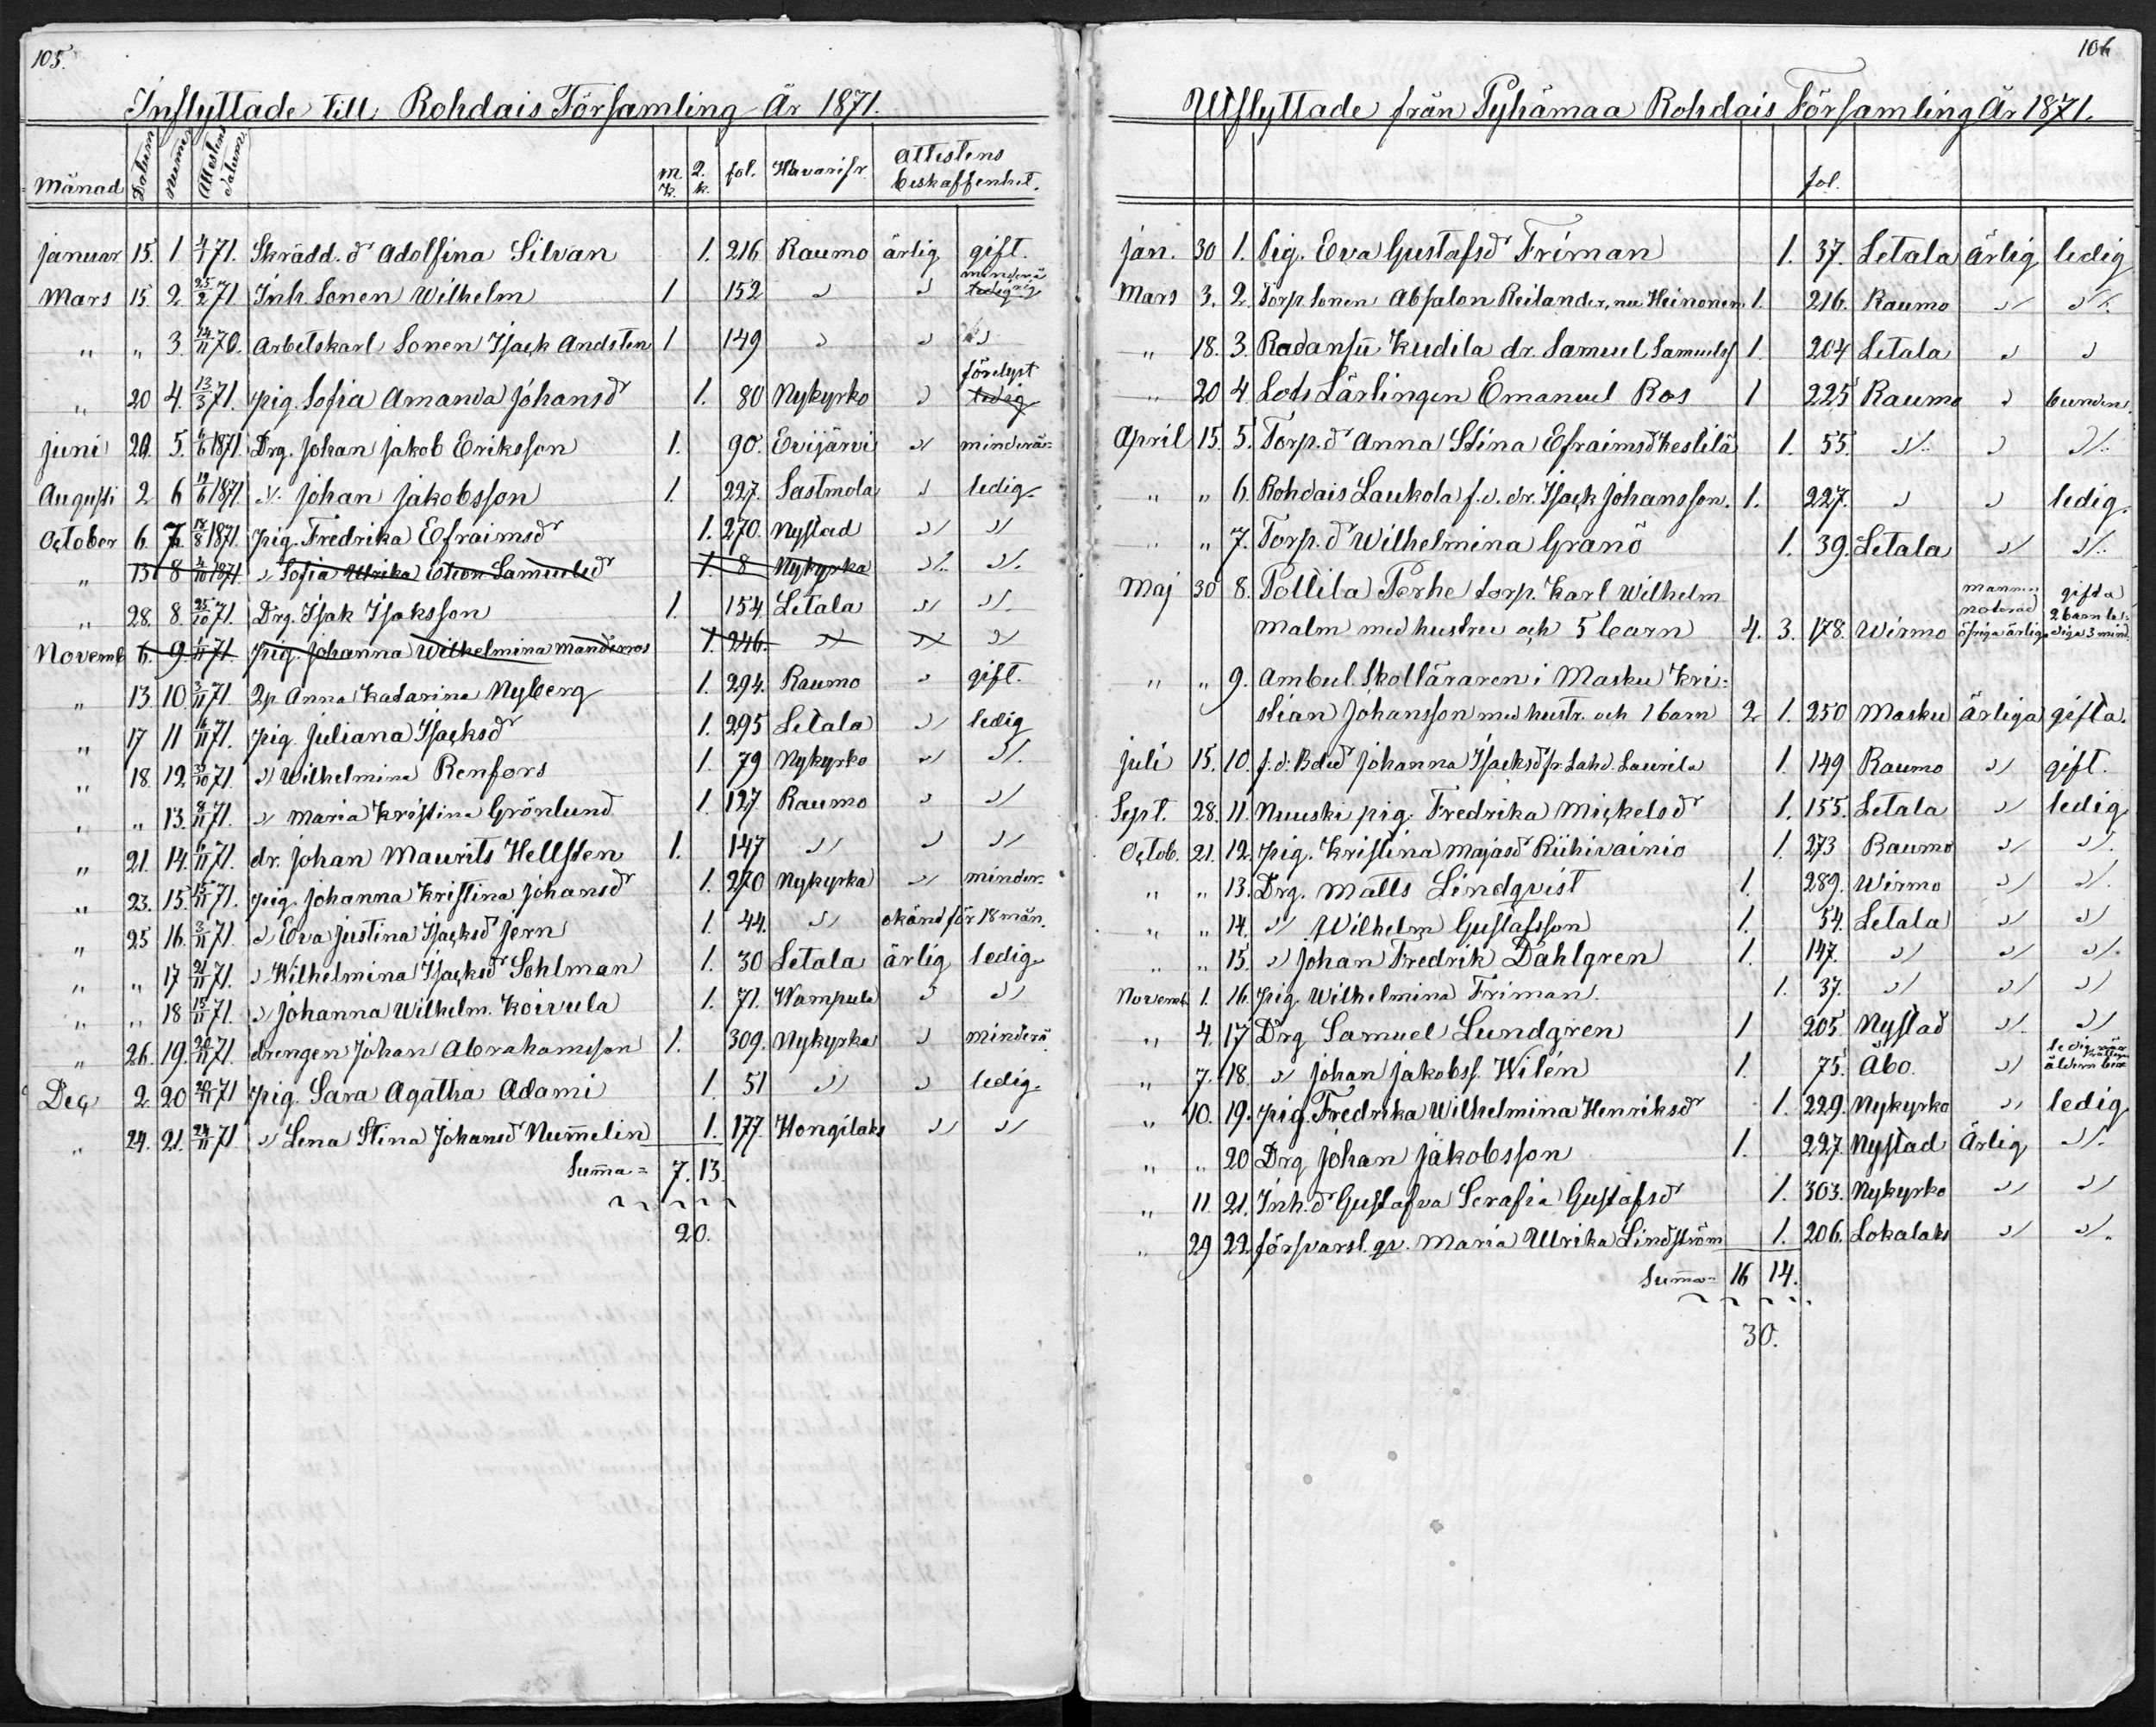 105.
Inflyttade till Rohdais Församling År 1871.
Månad Datum Numer Attestens datum m. k. 2. k. fol. Hvarifr. Attestens beskaffenhet.
Januar 15. 1. 4/1 71. Skrädd. d:r Adolfina Silvan 1. 216 Raumo ärlig gift.
Mars 15. 2. 25/2 71 Inh. Sonen Wilhelm 1 152 " " minderårig ledig
" " 3. 14/11 70. Arbetskarl Sonen Isack Andsten 1 149 " " "
" 20 4. 13/3 71. pig. Sofia Amanda Johansd:r 1. 80 Nykyrko " förelyst ledig
Juni 20. 5. 4/6 1871. Drg. Johan Jakob Eriksson 1. 90. Evijärvi " minderår:
Augusti 2 6 19/6 1871. " Johan Jakobsson 1. 227. Sastmola " ledig.
October 6. 7. 18/8 1871. pig. Fredrika Efraimsd:r 1. 270. Nystad " "
" 13 8 4/10 1871 " Sofia Ulrika Samuelsd:r 1. 8 Nykyrka " "
" 28. 8. 25/10 71. Drg. Isak Isaksson 1. 154. Letala " "
Novemb 6. 9. 1/11 71. pig. Johanna Wilhelmina Manderros 1. 246. " " "
" 13. 10. 3/11 71. Qp. Anna Katarina Nyberg 1. 294. Raumo " gift.
" 17 11 16/11 71. pig. Juliana Isacksd:r 1. 295 Letala " ledig
" 18. 12. 30/10 71. " Wilhelmina Renfors 1. 79 Nykyrko " "
" " 13. 8/11 71. " Maria Kristina Grönlund 1. 127 Raumo " "
" 21. 14. 6/11 71. dr. Johan Maurits Hellsten 1. 147 " " "
" 23. 15. 15/11 71. pig. Johanna Kristina Johansd:r 1. 270 Nykyrka " minder.
" 25 16. 3/11 71. " Eva Justina Isacksd:r Jern 1 44. " okänd för 18 mån.
" " 17 21/11 71. " Wilhelmina Isacksd:r Sohlman 1. 30 Letala ärlig ledig.
" " 18 15/11 71. " Johanna Wilhelm. Koivula 1. 71. Wampula " "
" 26. 19. 20/11 71. drengen Johan Abrahamsson 1. 309. Nykyrka " minderå
Dec 2. 20 71 pig. Sara Agatha Adami 1. 51 " " ledig.
" 24. 21. 24/11 71 " Lena Stina Johansd:r Nummelin 1. 177. Hongilaks " "
Summa = 7. 13.
20.
106
Utflyttade från Pyhämaa Rohdais Församling År 1871.
fol.
Jan. 30 1. Pig. Eva Gustafsd:r Friman 1. 37. Letala Ärlig ledig
Mars 3. 2. Torp. Sonen Absalon Reilander, nu Heinonen. 1. 216. Raumo " "
" 18. 3. Radansuu Kudila dr. Samuel Samuelss 1 204 Letala " "
" 20 4 Lots Lärlingen Emanuel Ros 1 225 Raumo " bunden.
April 15. 5. Torp. d:r Anna Stina Efraimsd:r Kestilä 1. 55. " " "
" " 6. Rohdais Laukola f.d. dr. Isack Johansson. 1. 227. " " ledig.
" " 7. Torp. d:r Wilhelmina Granö 1. 39. Letala " "
Maj 30 8. Pollila Perhe torp. Karl Wilhelm
Malm med hustru och 5 barn 4. 3. 178. Wirmo mannen noterad öfriga ärliga gifta 2 barn lediga 3 mind.
" " 9. Ambul. Skolläraren i Masku Kri:
stian Johansson med hustr. och 1 barn 2 1. 250 Masku Ärliga gifta.
Juli 15. 10. f.d. Johanna Isacksd:r fr. Lahd. Laurila 1. 149 Raumo " gift.
Sept. 28. 11. Nuuski pig. Fredrika Mickelsd:r 1. 155. Letala " ledig
Octob. 21. 12. pig. Kristina Majasd:r Riihivainio 1. 273 Raumo " "
" " 13. Drg. Matts Lindqvist 1. 289. Wirmo " "
" " 14. " Wilhelm Gustafsson 1. 54. Letala " "
" " 15. " Johan Fredrik Dahlgren 1. 147. " " "
Novemb. 1. 16. pig. Wilhelmina Friman 1. 37. " " "
" 4. 17 Drg. Samuel Lundgren 1 205. Nystad " "
" 7. 18. " Johan Jakobss. Wilén 1. 75. Åbo. "
" 10. 19. pig. Fredrika Wilhelmina Henriksd:r 1. 229. Nykyrko " ledig
" " 20 Drg Johan Jakobsson 1. 227. Nystad Ärlig "
" 11 21. Inh. d:r Gustafva Serafia Gustafsd:r 1. 303. Nykyrko " "
" 29 22. försvarsl. qv. Maria Ulrika Lindström 1. 206. Lokalaks " "
Summa = 16 14.
30.